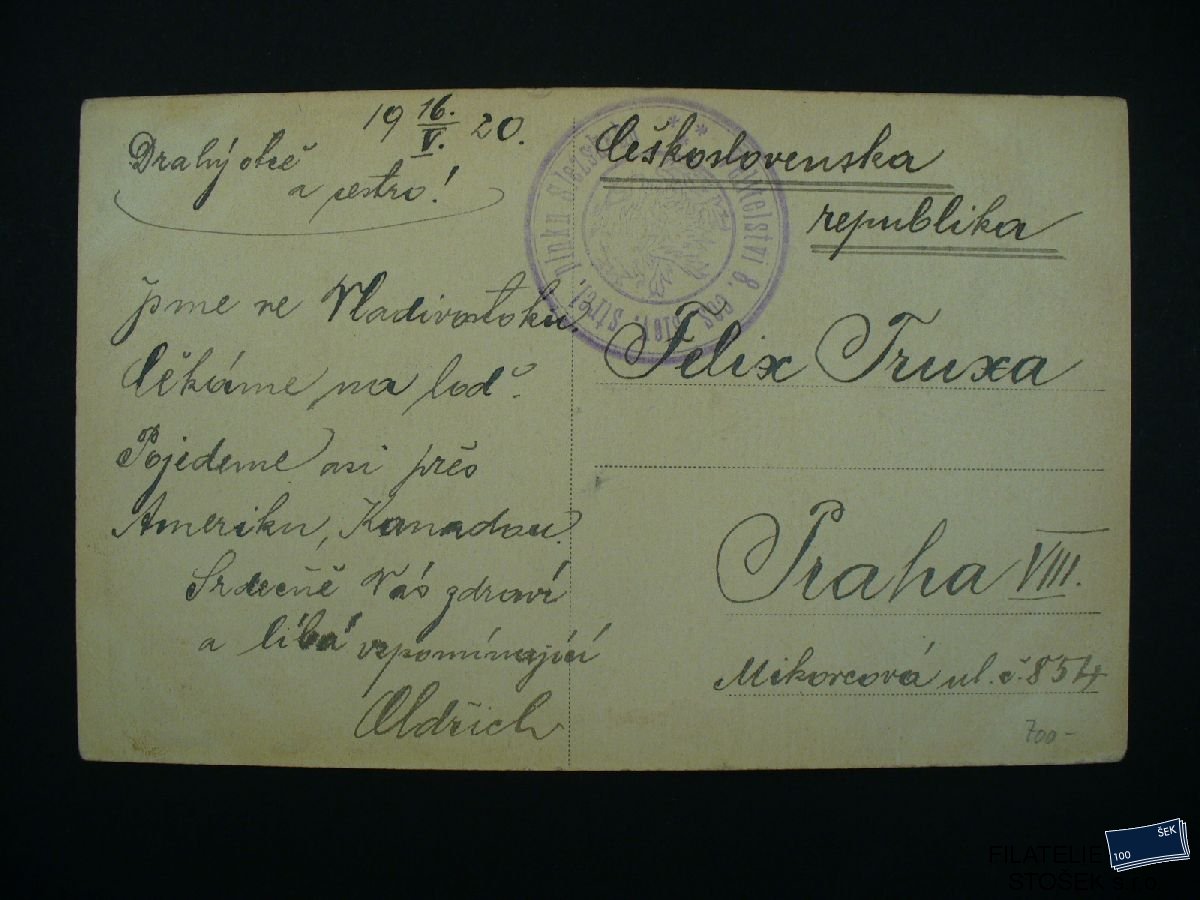 19 16. V. 20.
Drahý otče
a sestro!
Jsme ve Vladivostoku.
Čekáme na loď.
Pojedeme asi přes
Ameriku, Kanadou.
Srdečně Vás zdraví
a líbá vzpomínající
Oldřich
Československa
republika
Felix Truxa
Praha VIII.
Mikovcová ul. č. 854
700-
plnku slezského ** velitelství 8. čes. slov. střel.
ŠEK
100
FILATELIE
STOŠEK s.r.o.